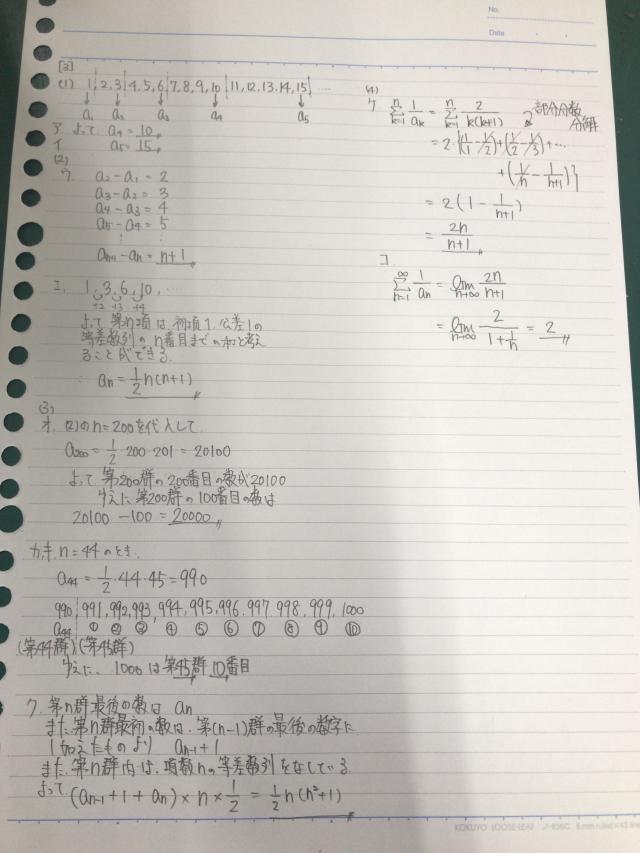 No.
Date
[3]
(1) 1 | 2, 3 | 4, 5, 6 | 7, 8, 9, 10 | 11, 12, 13, 14, 15 | …
↓ ↓ ↓ ↓ ↓
a₁ a₂ a₃ a₄ a₅
ア. よって a₄ = 10
イ a₅ = 15
(2)
ウ. a₂ - a₁ = 2
a₃ - a₂ = 3
a₄ - a₃ = 4
a₅ - a₄ = 5
⋮ ⋮
aₙ₊₁ - aₙ = n+1
エ. 1, 3, 6, 10, …
+2 +3 +4
よって第n項は、初項1、公差1の
等差数列のn番目までの和と考え
ることができる.
∴ aₙ = 1/2 n(n+1)
(3)
オ. (2)のn=200を代入して
a₂₀₀ = 1/2・200・201 = 20100
よって第200群の200番目の数が20100
ゆえに第200群の100番目の数は
20100 - 100 = 20000
カキ. n=44のとき.
a₄₄ = 1/2・44・45 = 990
990 | 991, 992, 993, 994, 995, 996, 997, 998, 999, 1000
a₄₄ ① ② ③ ④ ⑤ ⑥ ⑦ ⑧ ⑨ ⑩
(第44群) (第45群)
ゆえに、1000は第45群10番目
ク. 第n群最後の数は aₙ
また第n群最初の数は、第(n-1)群の最後の数字に
1加えたものより aₙ₋₁+1
また、第n群内は、項数nの等差数列をなしている
よって (aₙ₋₁+1+aₙ)×n×1/2 = 1/2 n(n²+1)
(4)
ケ ∑ₖ₌₁ⁿ 1/aₖ = ∑ₖ₌₁ⁿ 2/k(k+1) 部分分数
分解
= 2・{(1/1 - 1/2)+(1/2 - 1/3)+…
+(1/n - 1/(n+1))}
= 2(1 - 1/(n+1))
= 2n/(n+1)
コ
∑ₙ₌₁^∞ 1/aₙ = lim n→∞ 2n/(n+1)
= lim n→∞ 2/(1+1/n) = 2
KOKUYO LOOSE-LEAF